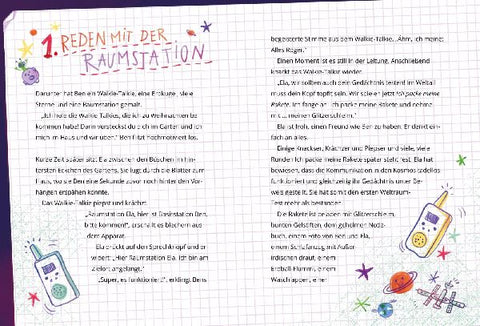 1. REDEN MIT DER
RAUMSTATION
Darunter hat Ben ein Walkie-Talkie, eine Erdkugel, viele
Sterne und eine Raumstation gemalt.
„Ich hole die Walkie-Talkies, die ich zu Weihnachten be-
kommen habe! Dann versteckst du dich im Garten und ich
mich im Haus und wir üben." Ben flitzt hochmotiviert los.
Kurze Zeit später sitzt Ela zwischen den Büschen im hin-
tersten Eckchen des Gartens. Sie lugt durch die Blätter zum
Haus, wo sie Ben eine Sekunde zuvor noch hinter den Vor-
hängen erspähen konnte.
Das Walkie-Talkie piepst und krächzt.
„Raumstation Ela, hier ist Basisstation Ben,
bitte kommen!", erschallt es blechern aus
dem Apparat.
Ela drückt auf den Sprechknopf und er-
widert: „Hier Raumstation Ela. Ich bin am
Zielort angelangt."
„Super, es funktioniert!", erklingt Bens
begeisterte Stimme aus dem Walkie-Talkie. „Ähm, ich meine:
Alles Roger."
Einen Moment ist es still in der Leitung. Anschließend
knackt das Walkie-Talkie wieder.
„Ela, wir sollten auch dein Gedächtnis testen! Im Weltall
muss dein Kopf topfit sein. Wir spielen jetzt Ich packe meine
Rakete. Ich fange an: Ich packe meine Rakete und nehme
mit ... meinen Glitzerschleim."
Ela ist froh, einen Freund wie Ben zu haben. Er denkt ein-
fach an alles.
Einige Knackser, Krächzer und Piepser und viele, viele
Runden Ich packe meine Rakete später steht fest: Ela hat
bewiesen, dass die Kommunikation in den Kosmos tadellos
funktioniert und gleichzeitig ihr Gedächtnis unter Be-
weis gestellt. Sie hat somit den ersten Weltraum-
Test mehr als bestanden.
Die Rakete ist beladen mit Glitzerschleim,
bunten Gelstiften, dem geheimen Notiz-
buch, einem Foto von Ben und Ela,
einem Schlafanzug mit Außer-
irdischen drauf, einem
Eisbär, einem
Waschlappen, einer